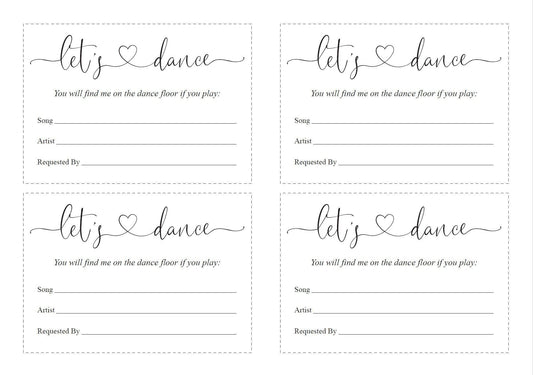 let's dance
You will find me on the dance floor if you play:
Song
Artist
Requested By
let's dance
You will find me on the dance floor if you play:
Song
Artist
Requested By
let's dance
You will find me on the dance floor if you play:
Song
Artist
Requested By
let's dance
You will find me on the dance floor if you play:
Song
Artist
Requested By